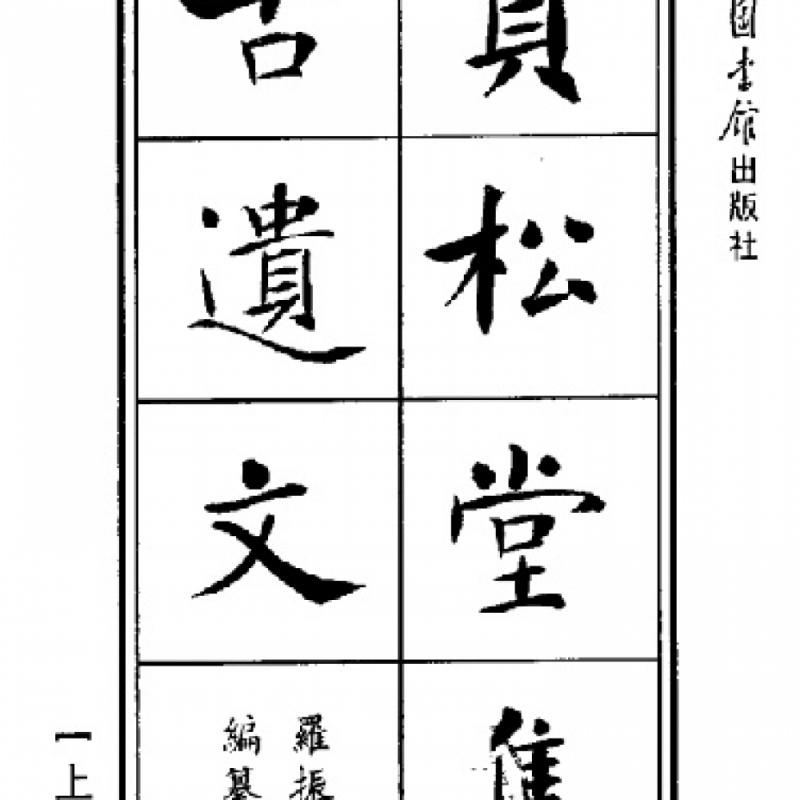 圖書館出版社
貞松堂
古遺文
羅振
編纂
【上